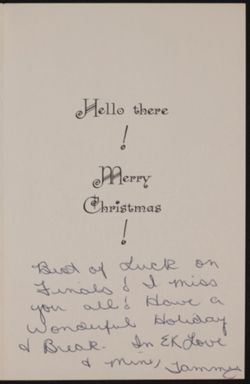 Hello there
!
Merry
Christmas
!
Best of Luck on
Finals! I miss
you all! Have a
Wonderful Holiday
& Break. In EK Love
& mine, Tammy